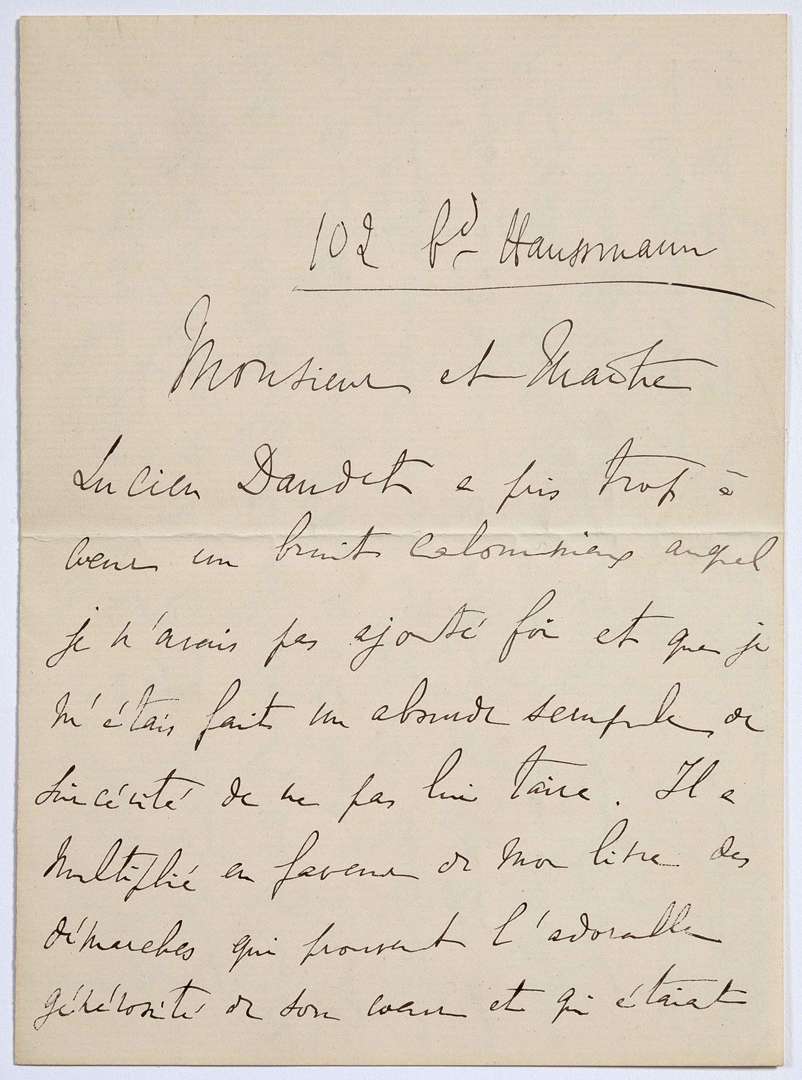 102 bd Haussmann
Monsieur et Maître
Lucien Daudet a pris trop à
cœur un bruit calomnieux auquel
je n'avais pas ajouté foi et que je
m'étais fait un absurde scrupule de
sincérité de ne pas lui taire. Il a
multiplié en faveur de mon livre des
démarches qui prouvent l'adorable
générosité de son cœur et qui étaient